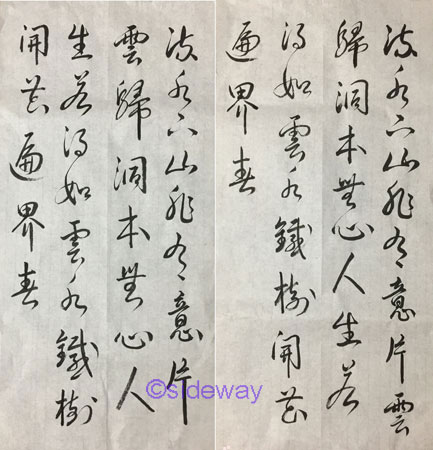 流水下山非有意片雲
歸洞本無心人生若
得如雲水鐵樹開花
遍界春
流水下山非有意片
雲歸洞本無心人
生若得如雲水鐵樹
開花遍界春
©sideway